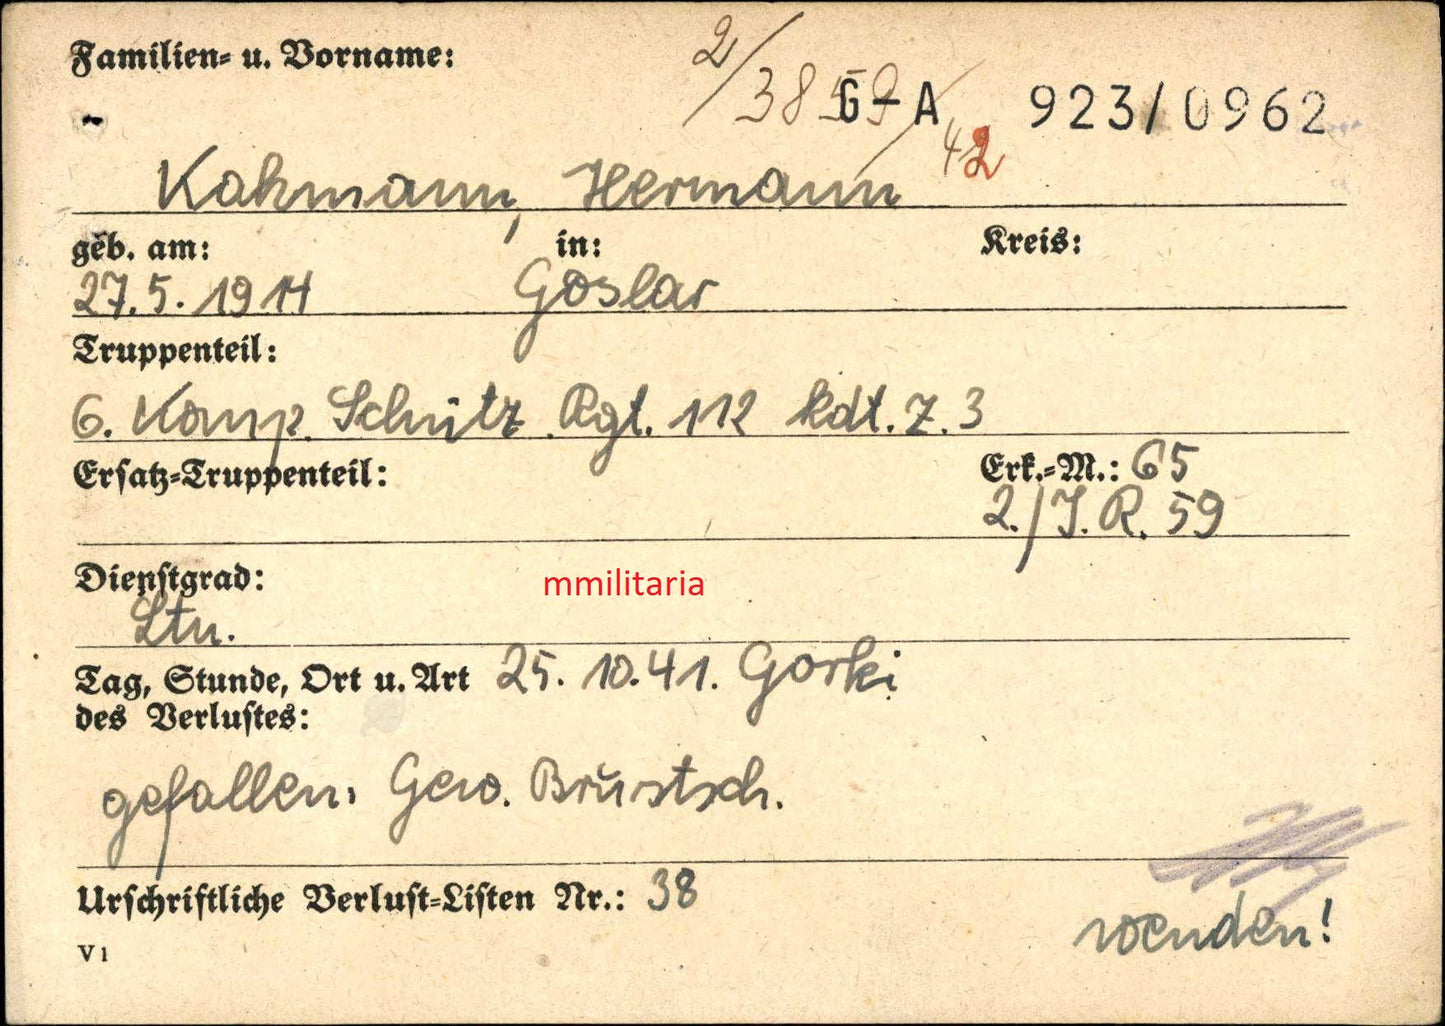 Familien- u. Vorname:
2/3859/42
G-A 923/0962
Kahmann, Hermann
geb. am: in: Kreis:
27.5.1914 Goslar
Truppenteil:
6. Komp. Schütz. Rgt. 112 kdt. z. 3
Ersatz-Truppenteil: Erk.-M.: 65
2./J.R. 59
Dienstgrad:
mmilitaria
Ltn.
Tag, Stunde, Ort u. Art 25. 10. 41. Gorki
des Verlustes:
gefallen. Gew. Brustsch.
Urschriftliche Verlust-Listen Nr.: 38
wenden!
V 1